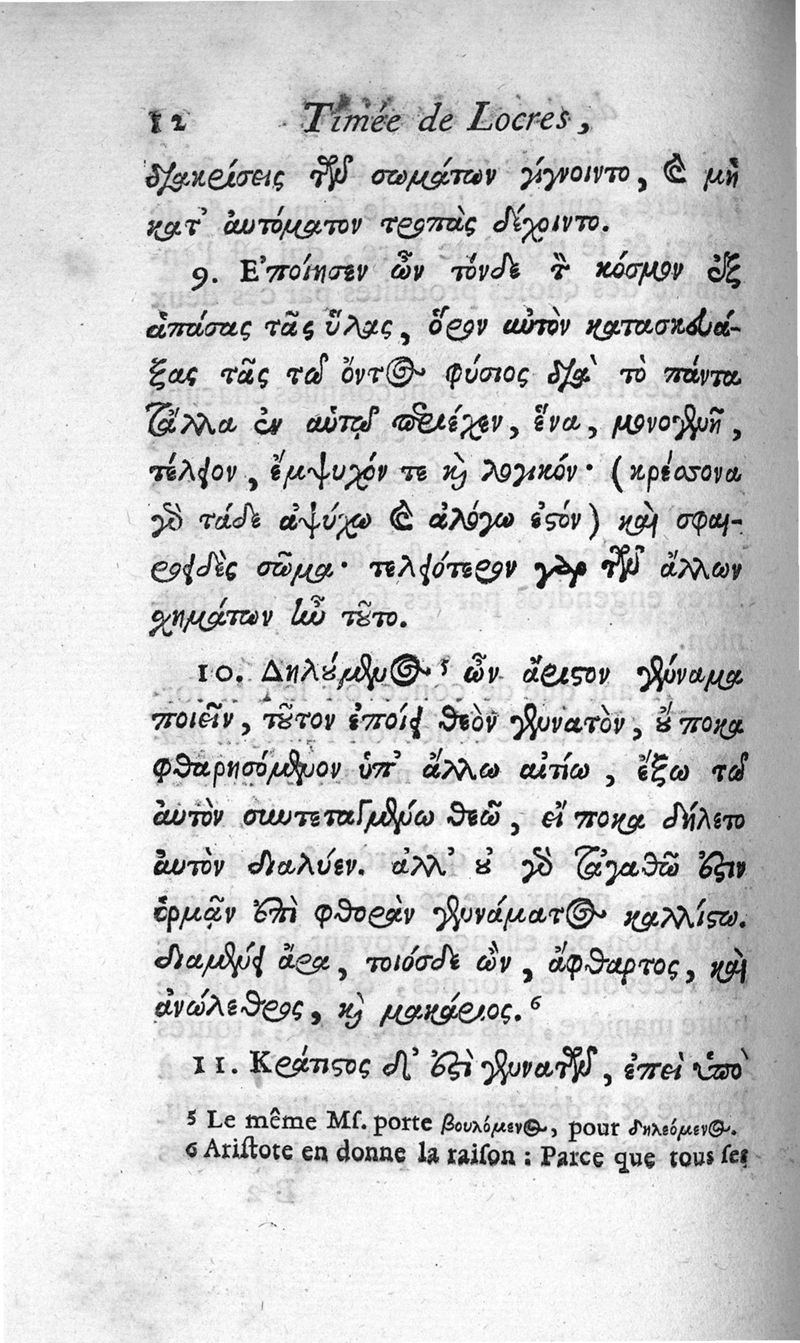 12 Timée de Locres,
διακρίσεις τῶν σωμάτων γίγνοιντο, καὶ μὴ
κατ' ἀυτόματον τροπὰς δέχοιντο.
9. Ε'ποίησεν ὦν τόνδε τὸν κόσμον ἐξ
ἁπάσας τᾶς ὕλας, ὅρον αὐτὸν κατασκευά-
ξας τᾶς τῶ ὄντος φύσιος διὰ τὸ πάντα
τἆλλα ἐν αὑτῷ περιέχεν, ἕνα, μονογενῆ,
τέλειον, ἔμψυχόν τε καὶ λογικόν· (κρέσσονα
γὸ τάδε ἀψύχω καὶ ἀλόγω ἐςόν) καὶ σφαι-
ροειδὲς σῶμα· τελειότερον γὰρ τῶν ἄλλων
σχημάτων ἰῶ τοῦτο.
10. Δηλούμενος⁵ ὦν ἄριστον γένναμα
ποιεῖν, τοῦτον ἐποίει θεὸν γεννατὸν, οὔ ποκα
φθαρησόμενον ὑπ' ἄλλω αἰτίω, ἔξω τῶ
ἀυτὸν συντεταγμένω θεῶ, εἴ ποκα δήλετο
ἀυτὸν διαλύεν. ἀλλ' οὐ γὸ τἀγαθῶ ἐστιν
ὁρμᾷν ἐπὶ φθορὰν γεννάματος καλλίστω.
διαμένει ἄρα, τοιόσδε ὢν, ἄφθαρτος, καὶ
ἀνώλεθρος, καὶ μακάριος.⁶
11. Κράτιστος δ' ἐστὶ γεννατῶν, ἐπεὶ ὑπὸ
5 Le même Mſ. porte βουλόμενος, pour δηλεόμενος.
6 Ariſtote en donne la raiſon : Parce que tous ſes